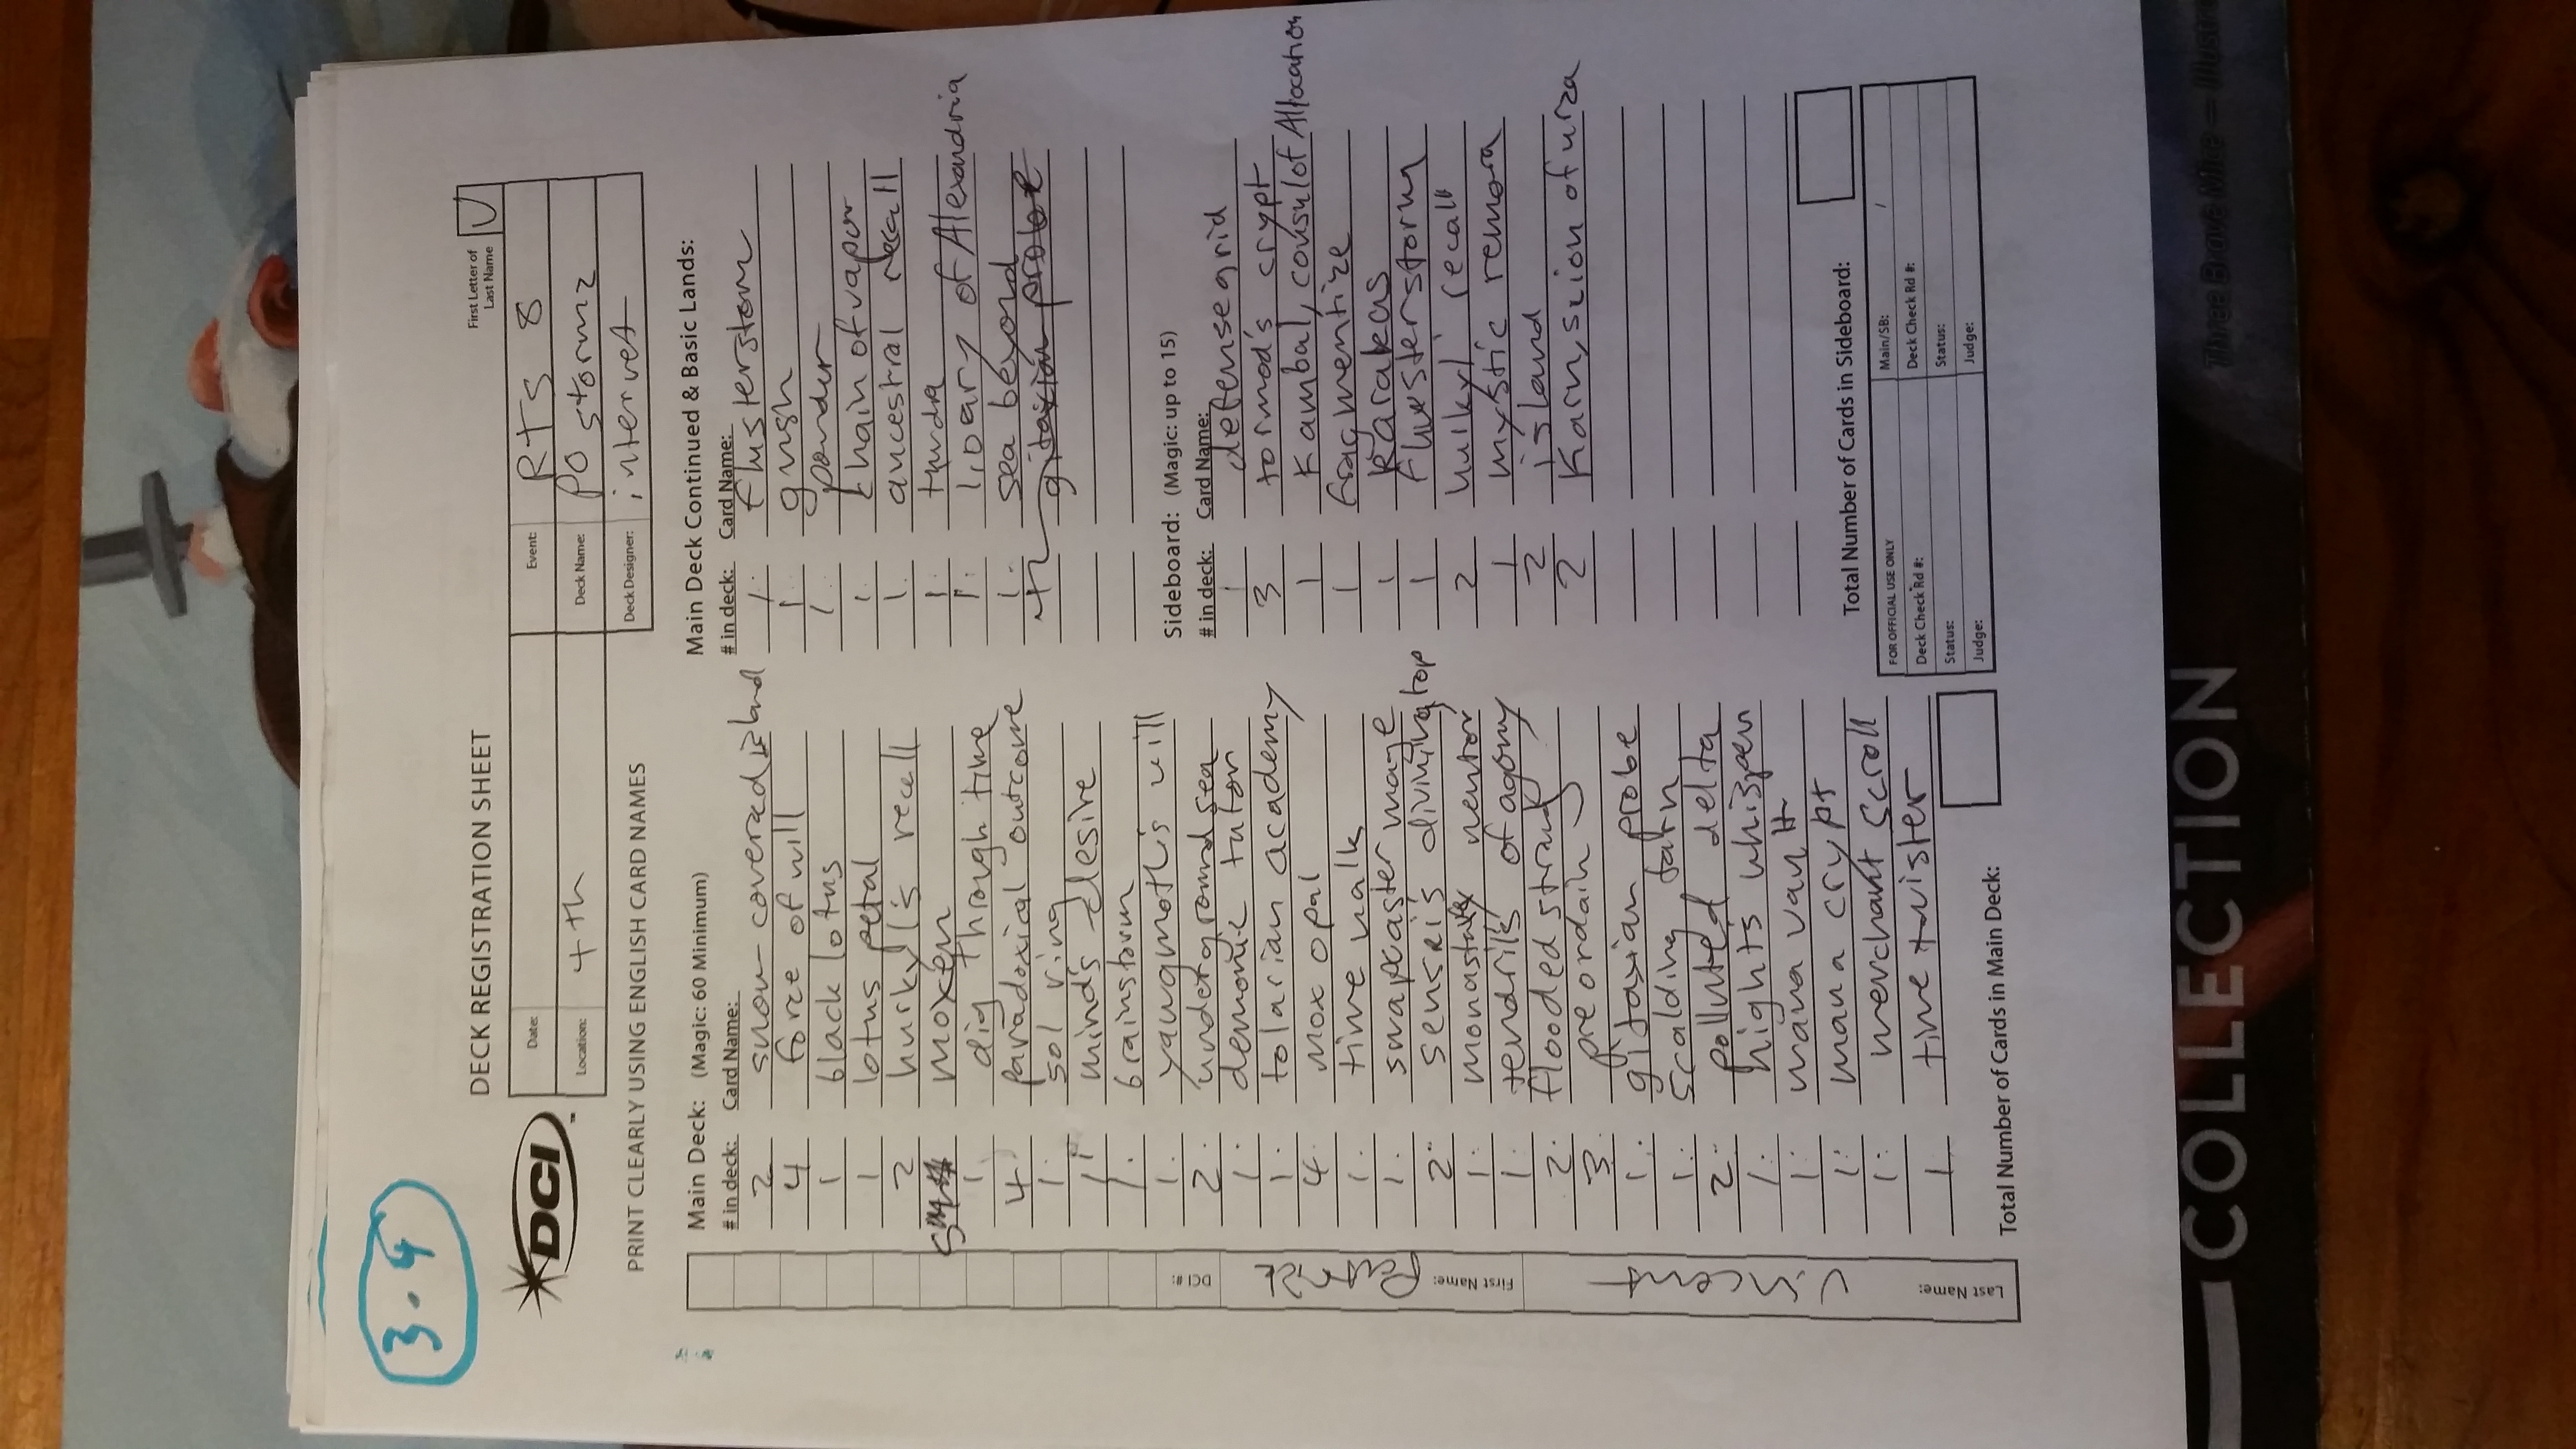 3-4
DECK REGISTRATION SHEET
First Letter of Last Name V
DCI ™
Date:
Event: RTS 8
Location: 4th
Deck Name: PO stormz
Deck Designer: internet
PRINT CLEARLY USING ENGLISH CARD NAMES
Last Name: Vincent First Name: Patrick DCI #:
Main Deck: (Magic: 60 Minimum)
# in deck: Card Name:
2 snow-covered island
4 force of will
1 black lotus
1 lotus petal
2 hurkyl's recall
5 moxen
1 dig through time
4 paradoxical outcome
1 sol ring
1 mind's desire
1 brainstorm
1 yawgmoth's will
2 underground sea
1 demonic tutor
1 tolarian academy
4 mox opal
1 time walk
1 snapcaster mage
2 sensei's divining top
1 monastary mentor
1 tendrils of agony
2 flooded strand
3 preordain
1 gitaxian probe
1 scalding tarn
2 polluted delta
1 night's whisper
1 mana vault
1 mana crypt
1 merchant scroll
1 time twister
Total Number of Cards in Main Deck:
Main Deck Continued & Basic Lands:
# in deck: Card Name:
1 flusterstorm
1 gush
1 ponder
1 chain of vapor
1 ancestral recall
1 tundra
1 libary of Alexandria
1 sea beyond
gitaxian probe
Sideboard: (Magic: up to 15)
# in deck: Card Name:
1 defense grid
3 tormod's crypt
1 Kambal, consul of Allocation
1 fragmentize
1 Karakas
1 flusterstorm
2 hurkyl' recall
1 mystic remora
2 island
2 Karn, scion of urza
Total Number of Cards in Sideboard:
FOR OFFICIAL USE ONLY
Main/SB: /
Deck Check Rd #:
Deck Check Rd #:
Status:
Status:
Judge:
Judge:
COLLECTION
Three Brave Mice — Illustr